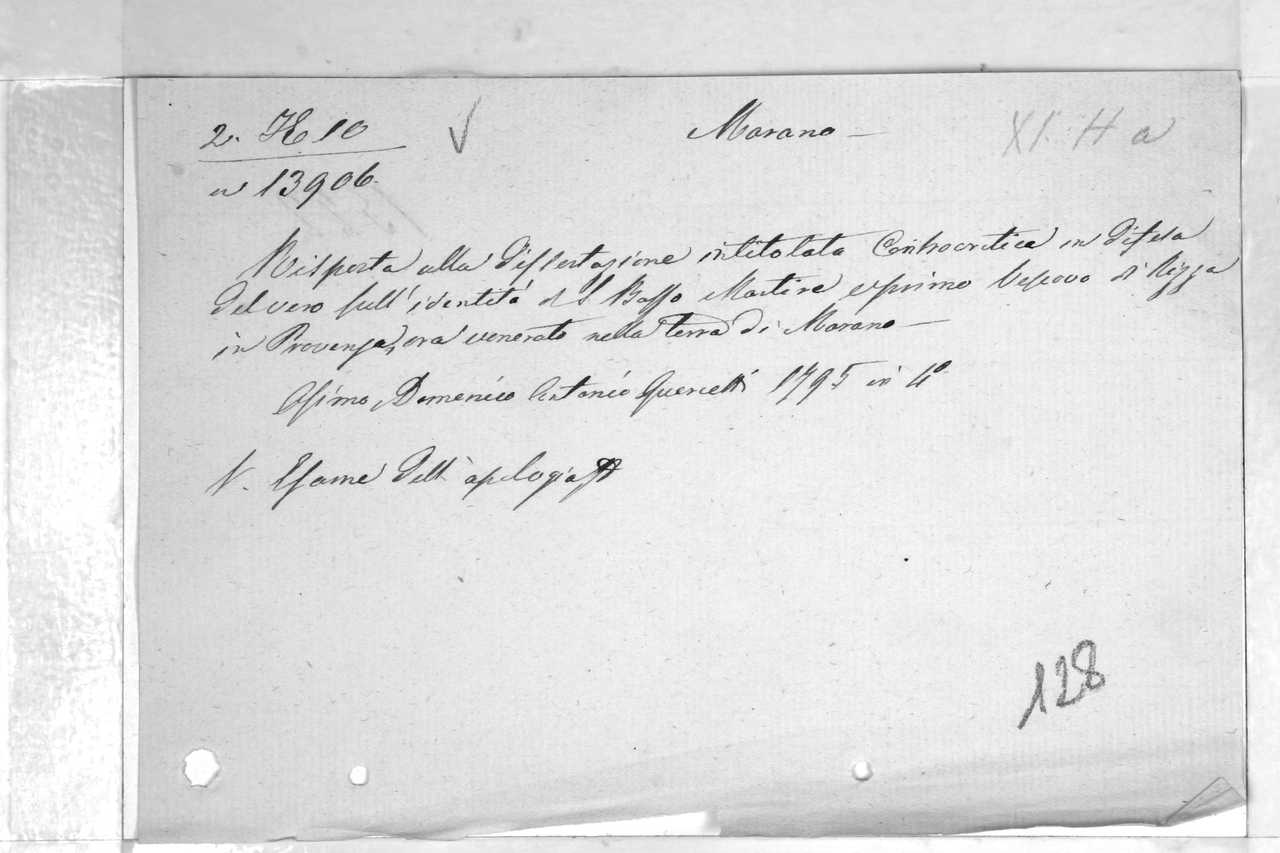 2. H 10
Marano —
XI H a
n 13906.
Risposta alla dissertazione intitolata Controcritica in difesa
del vero sull'identità di S Basso Martire e primo Vescovo di Nizza
in Provenza, ora venerato nella terra di Marano —
Osimo, Domenico Antonio Quercetti 1795 in 4º
V. Esame dell'apologia
128